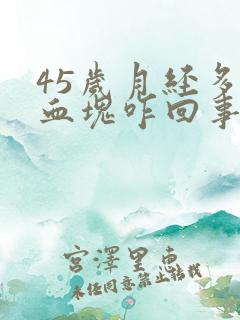 45歲月經多
血塊咋回事
宮澤里惠
未經同意禁止轉載